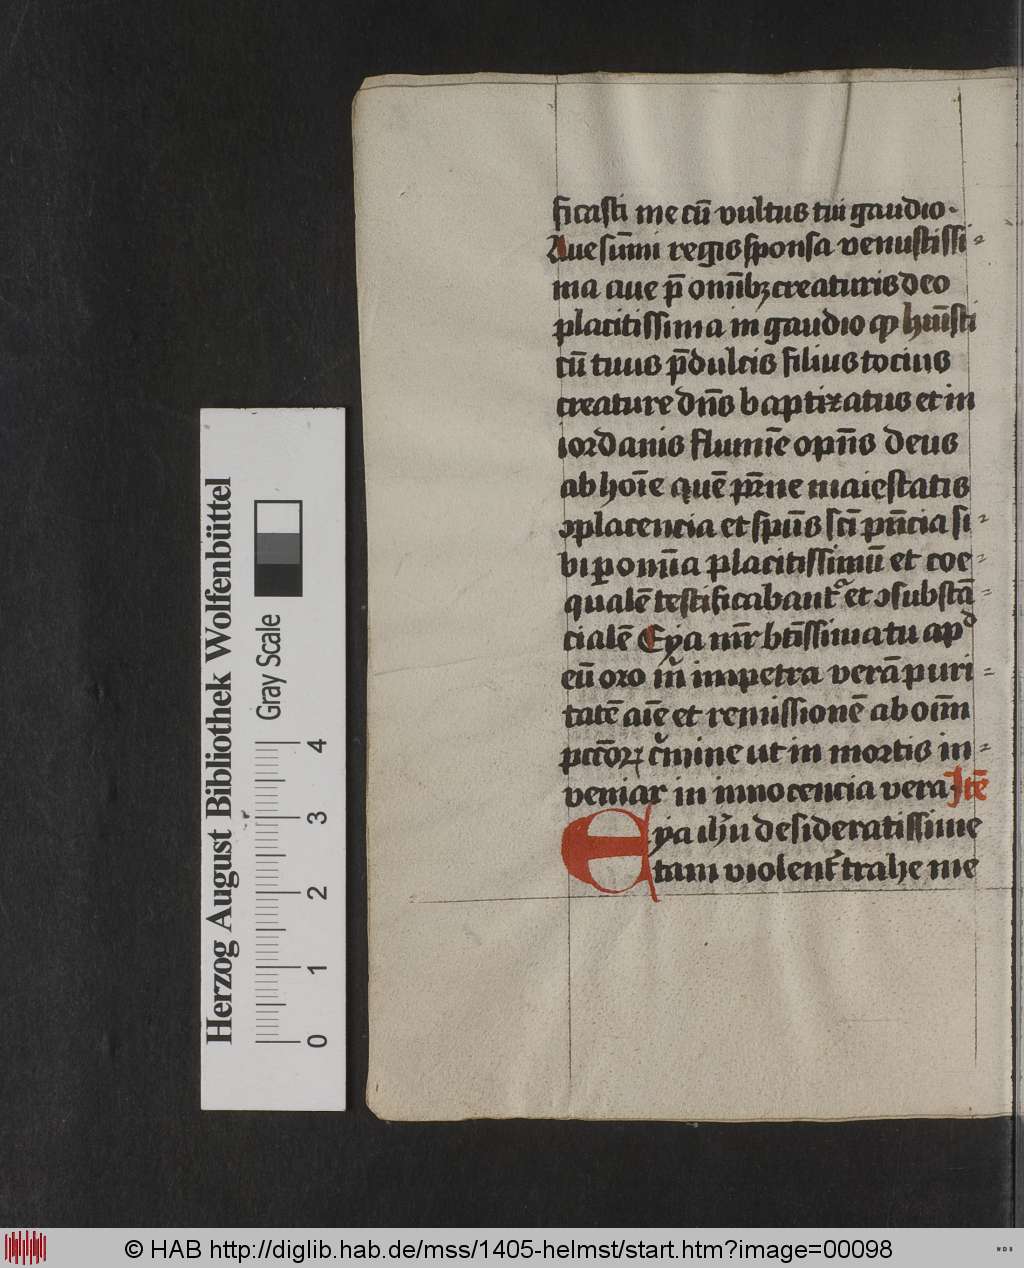 ficasti me cū vultus tui gaudio.
Aue sūmi regis sponsa venustissi-
ma aue p̄ omībꝫ creaturis deo
placitissima in gaudio qꝫ hūısti
cū tuus p̄dulcis filius tocius
creature dn̄s baptizatus et in
iordanis flumīe opn̄s deus
ab hoīe quē pr̄ne maiestatis
ꝯplacencia et spūs scī pn̄cia si-
bi ꝑ omīa placitissimū et coe-
qualē testificabantᷣ et ꝯsubstā-
cialē Eya mr̄ btīssima tu apᵈ
eū oro m̄ impetra verā puri-
tatē aīe et remissionē ab oīm
pctōꝝ c̓mine ut in mortis in-
veniar in innocencia vera Itē
Eya ihū desideratissime
tam violent̓ trahe me
Herzog August Bibliothek Wolfenbüttel
Gray Scale
0 1 2 3 4
© HAB http://diglib.hab.de/mss/1405-helmst/start.htm?image=00098